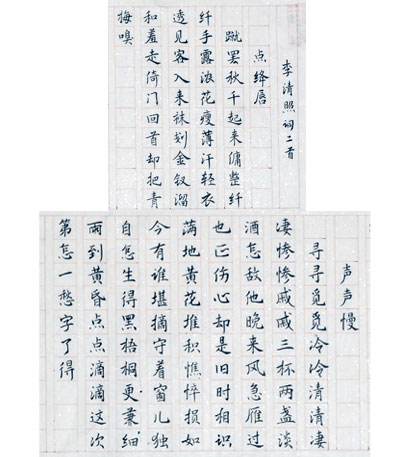 李清照词二首
点绛唇
蹴罢秋千起来慵整纤
纤手露浓花瘦薄汗轻衣
透见客入来袜刬金钗溜
和羞走倚门回首却把青
梅嗅
声声慢
寻寻觅觅冷冷清清凄
凄惨惨戚戚三杯两盏淡
酒怎敌他晚来风急雁过
也正伤心却是旧时相识
满地黄花堆积憔悴损如
今有谁堪摘守着窗儿独
自怎生得黑梧桐更兼细
雨到黄昏点点滴滴这次
第怎一愁字了得